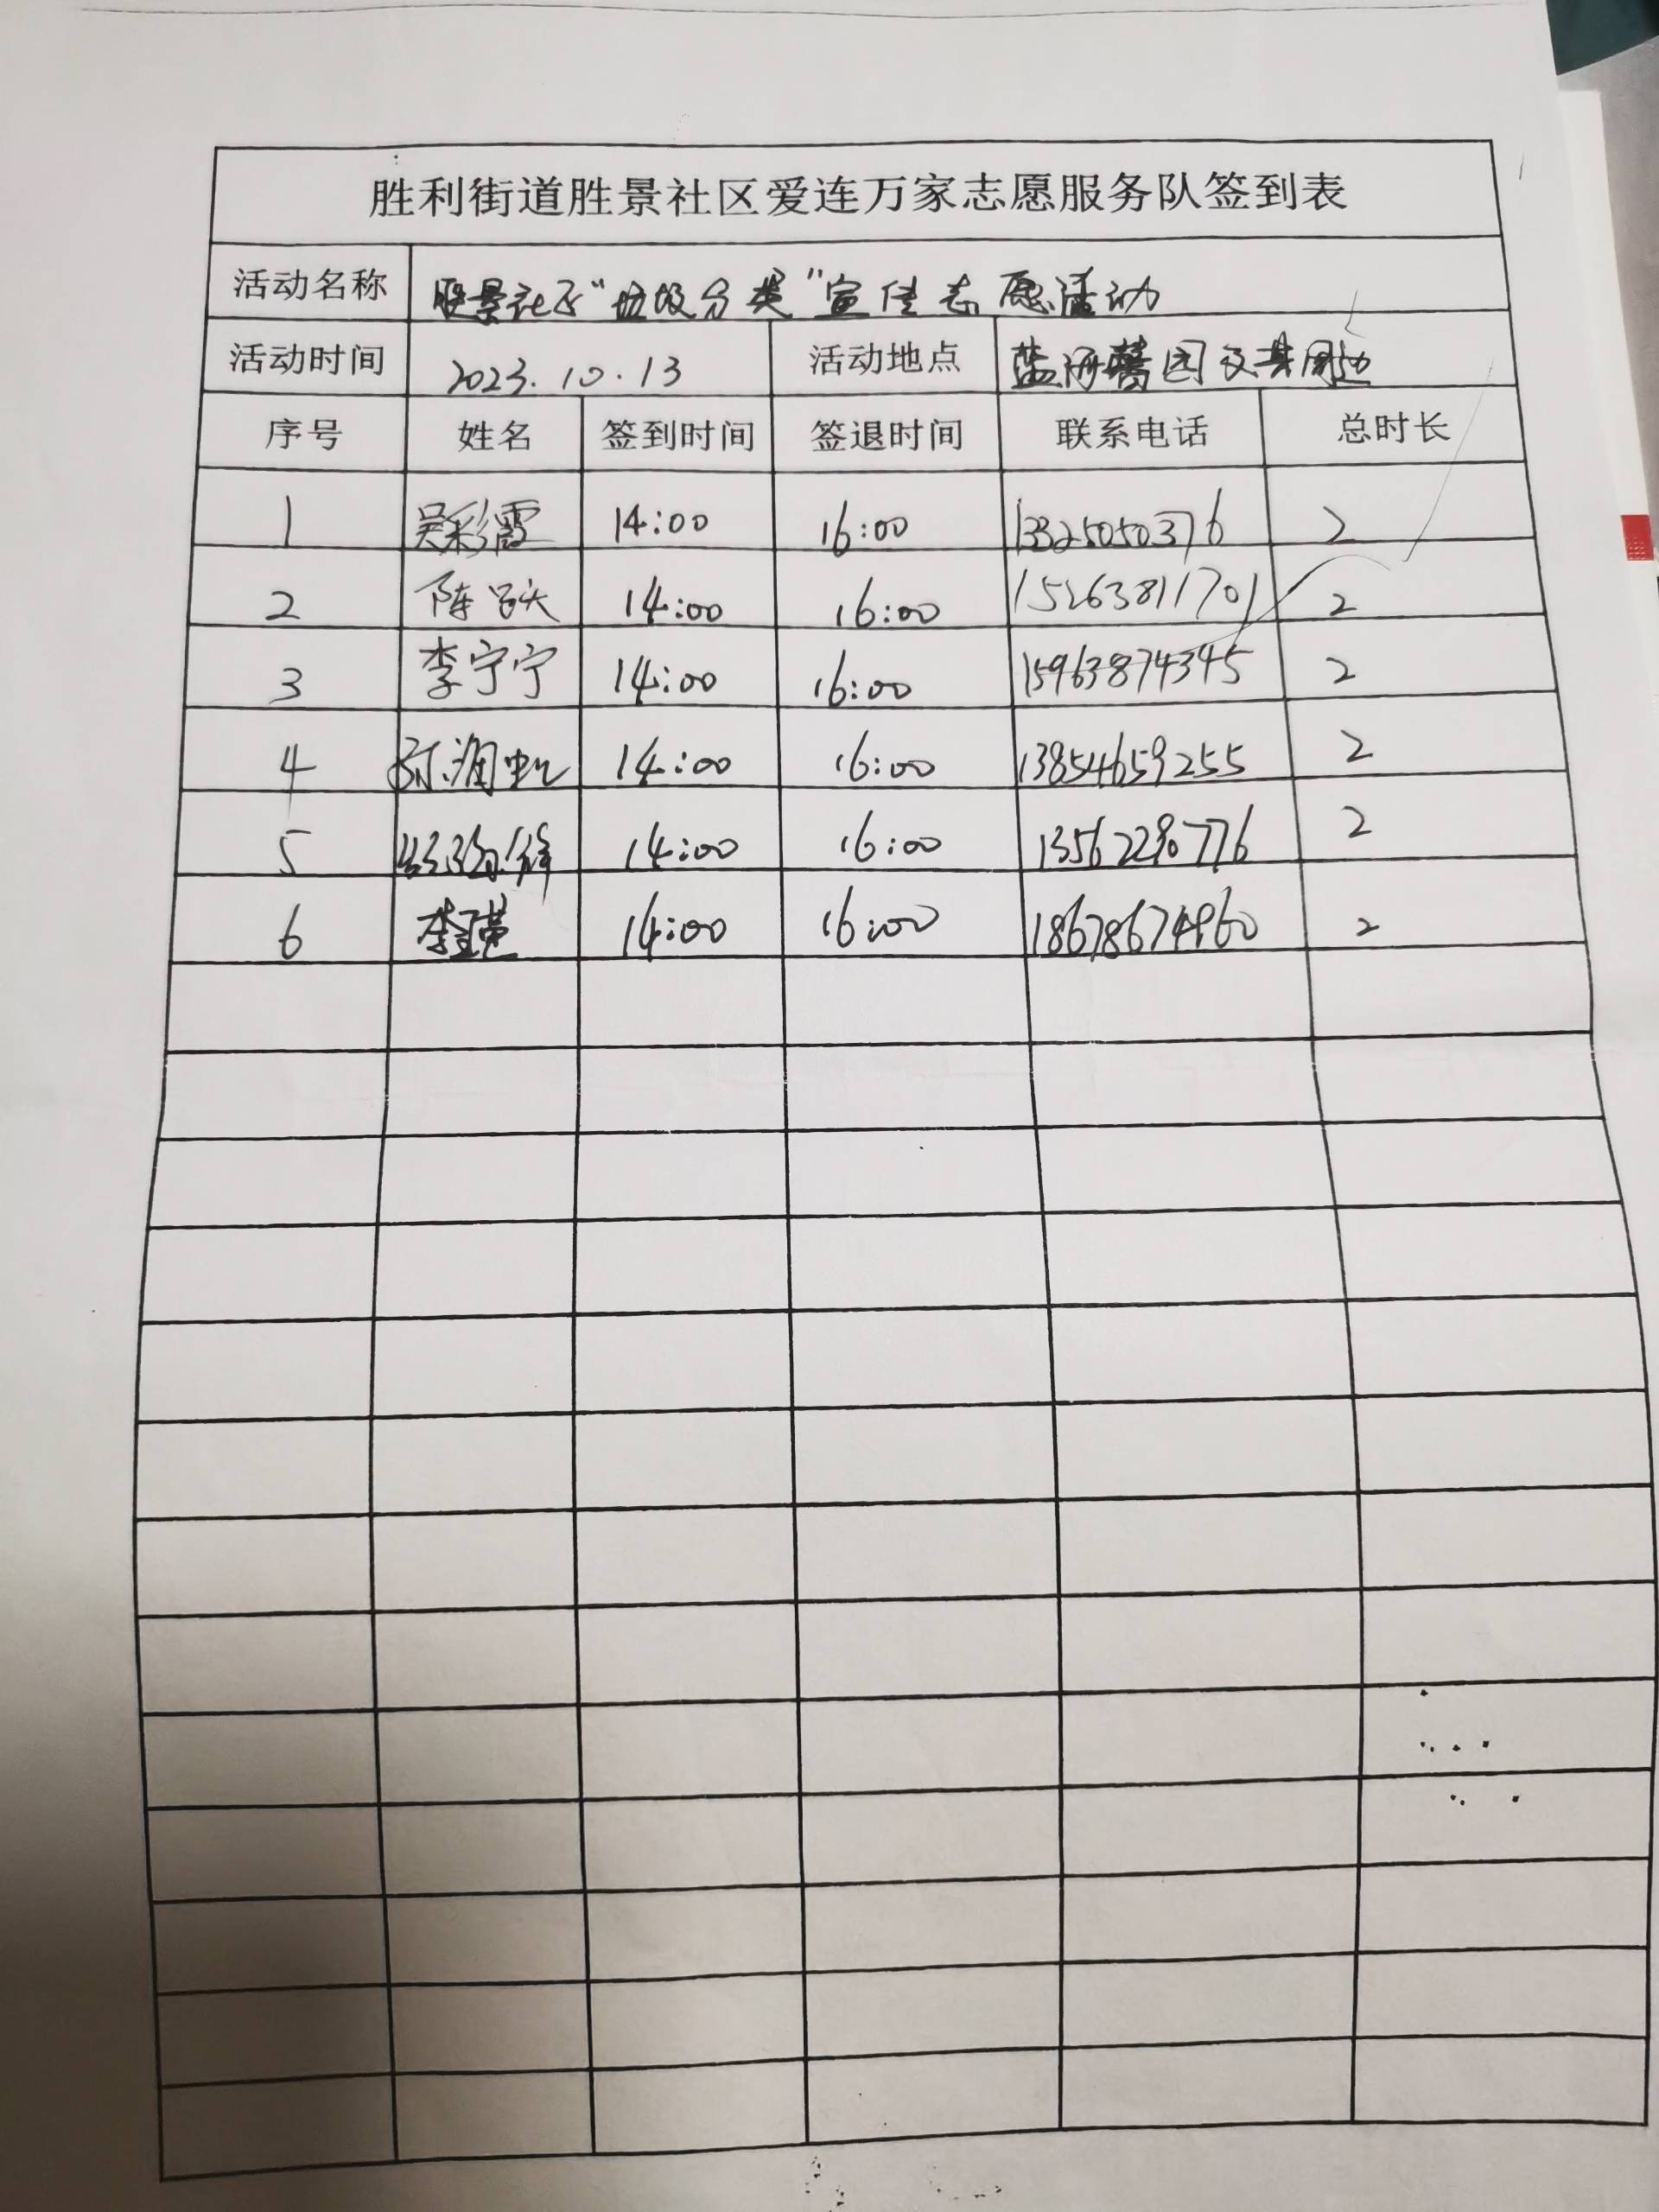 胜利街道胜景社区爱连万家志愿服务队签到表
活动名称 胜景社区“垃圾分类”宣传志愿活动
活动时间 2023.10.13 活动地点 蓝海馨园及其周边
序号 姓名 签到时间 签退时间 联系电话 总时长
1 吴彩霞 14:00 16:00 13325050376 2
2 陈 14:00 16:00 15263811701 2
3 李宁宁 14:00 16:00 15963874345 2
4 14:00 16:00 13854659255 2
5 14:00 16:00 13562280776 2
6 李 14:00 16:00 18678674960 2